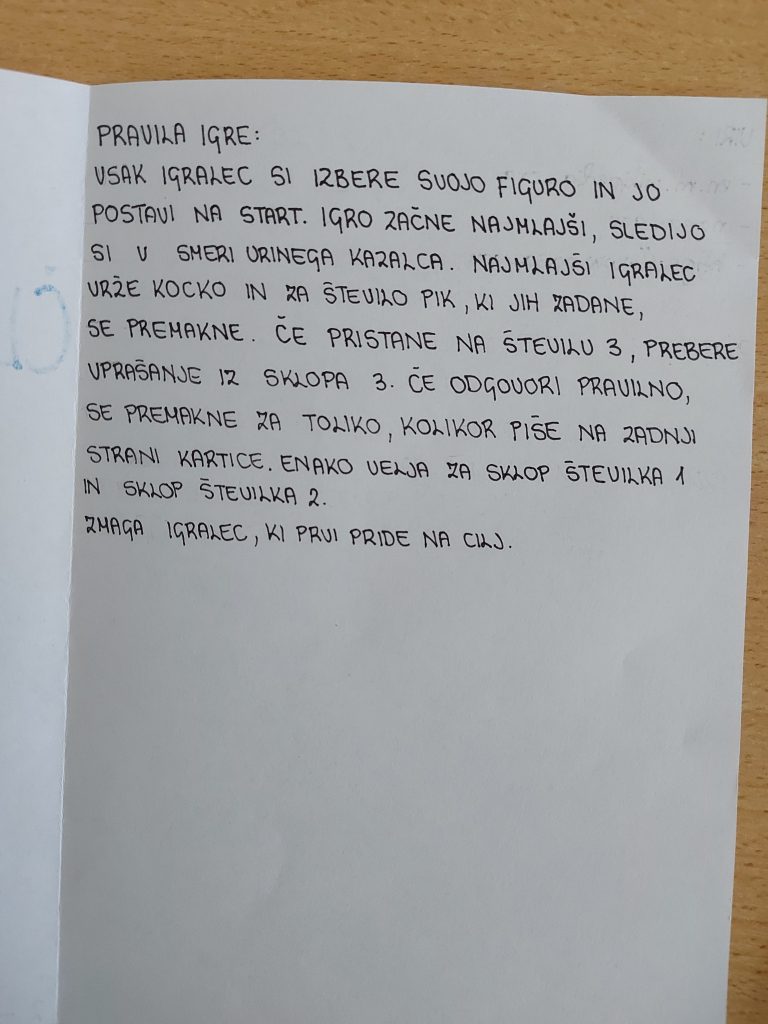 PRAVILA IGRE:
VSAK IGRALEC SI IZBERE SVOJO FIGURO IN JO
POSTAVI NA START. IGRO ZAČNE NAJMLAJŠI, SLEDIJO
SI V SMERI URINEGA KAZALCA. NAJMLAJŠI IGRALEC
VRŽE KOCKO IN ZA ŠTEVILO PIK, KI JIH ZADANE,
SE PREMAKNE. ČE PRISTANE NA ŠTEVILU 3, PREBERE
VPRAŠANJE IZ SKLOPA 3. ČE ODGOVORI PRAVILNO,
SE PREMAKNE ZA TOLIKO, KOLIKOR PIŠE NA ZADNJI
STRANI KARTICE. ENAKO VELJA ZA SKLOP ŠTEVILKA 1
IN SKLOP ŠTEVILKA 2.
ZMAGA IGRALEC, KI PRVI PRIDE NA CILJ.